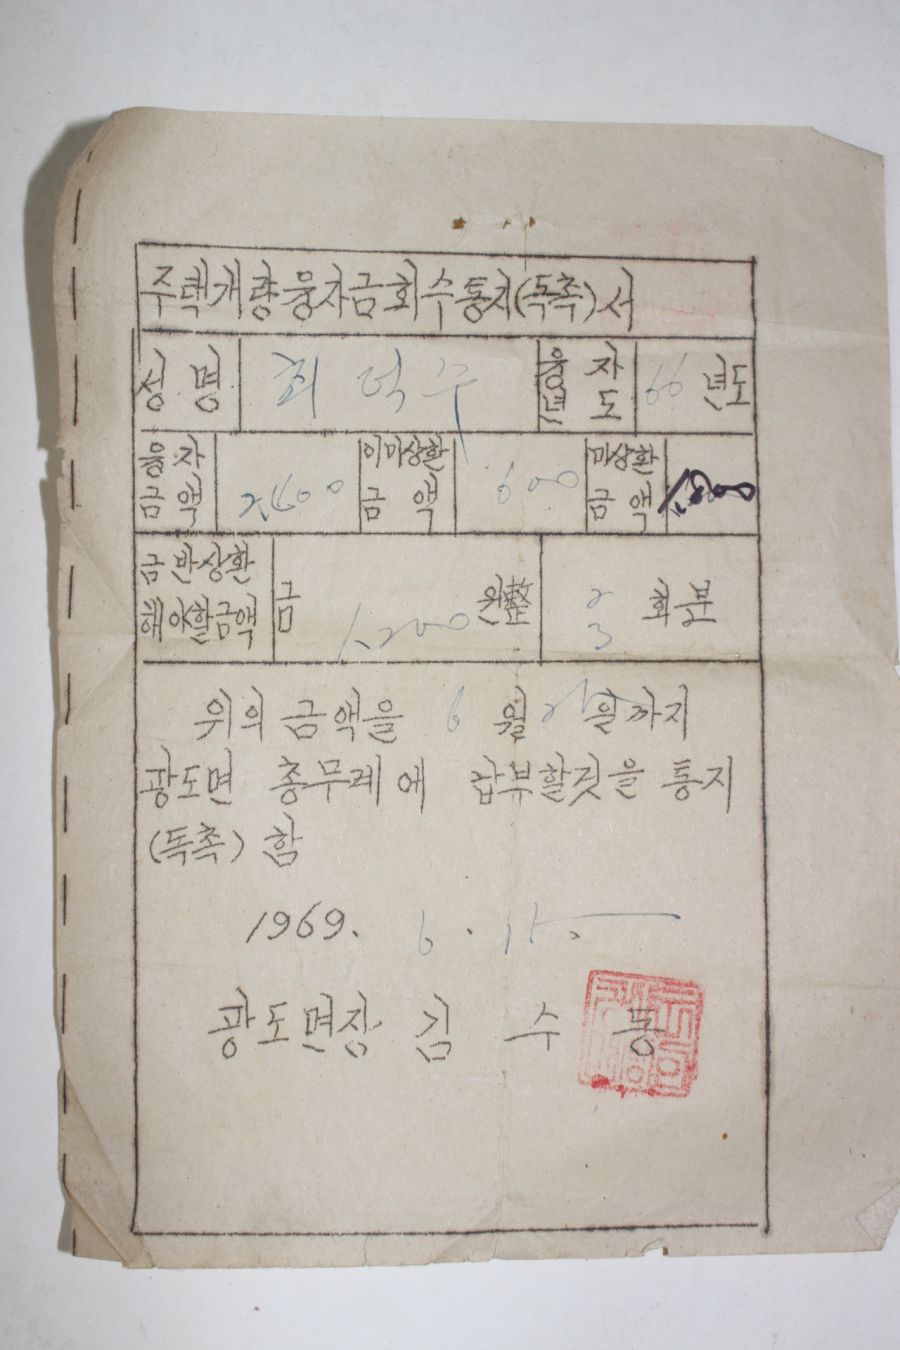 주택개량융자금회수통지(독촉)서
성명 최덕수 융자년도 66년도
융자금액 2,400 이미상환금액 600 미상환금액
금반상환해야할금액 금 1,200 원整 2 3 회분
위의 금액을 6월 25일까지
광도면 총무계에 납부할것을 통지
(독촉) 함
1969. 6. 15.
광도면장 김수동